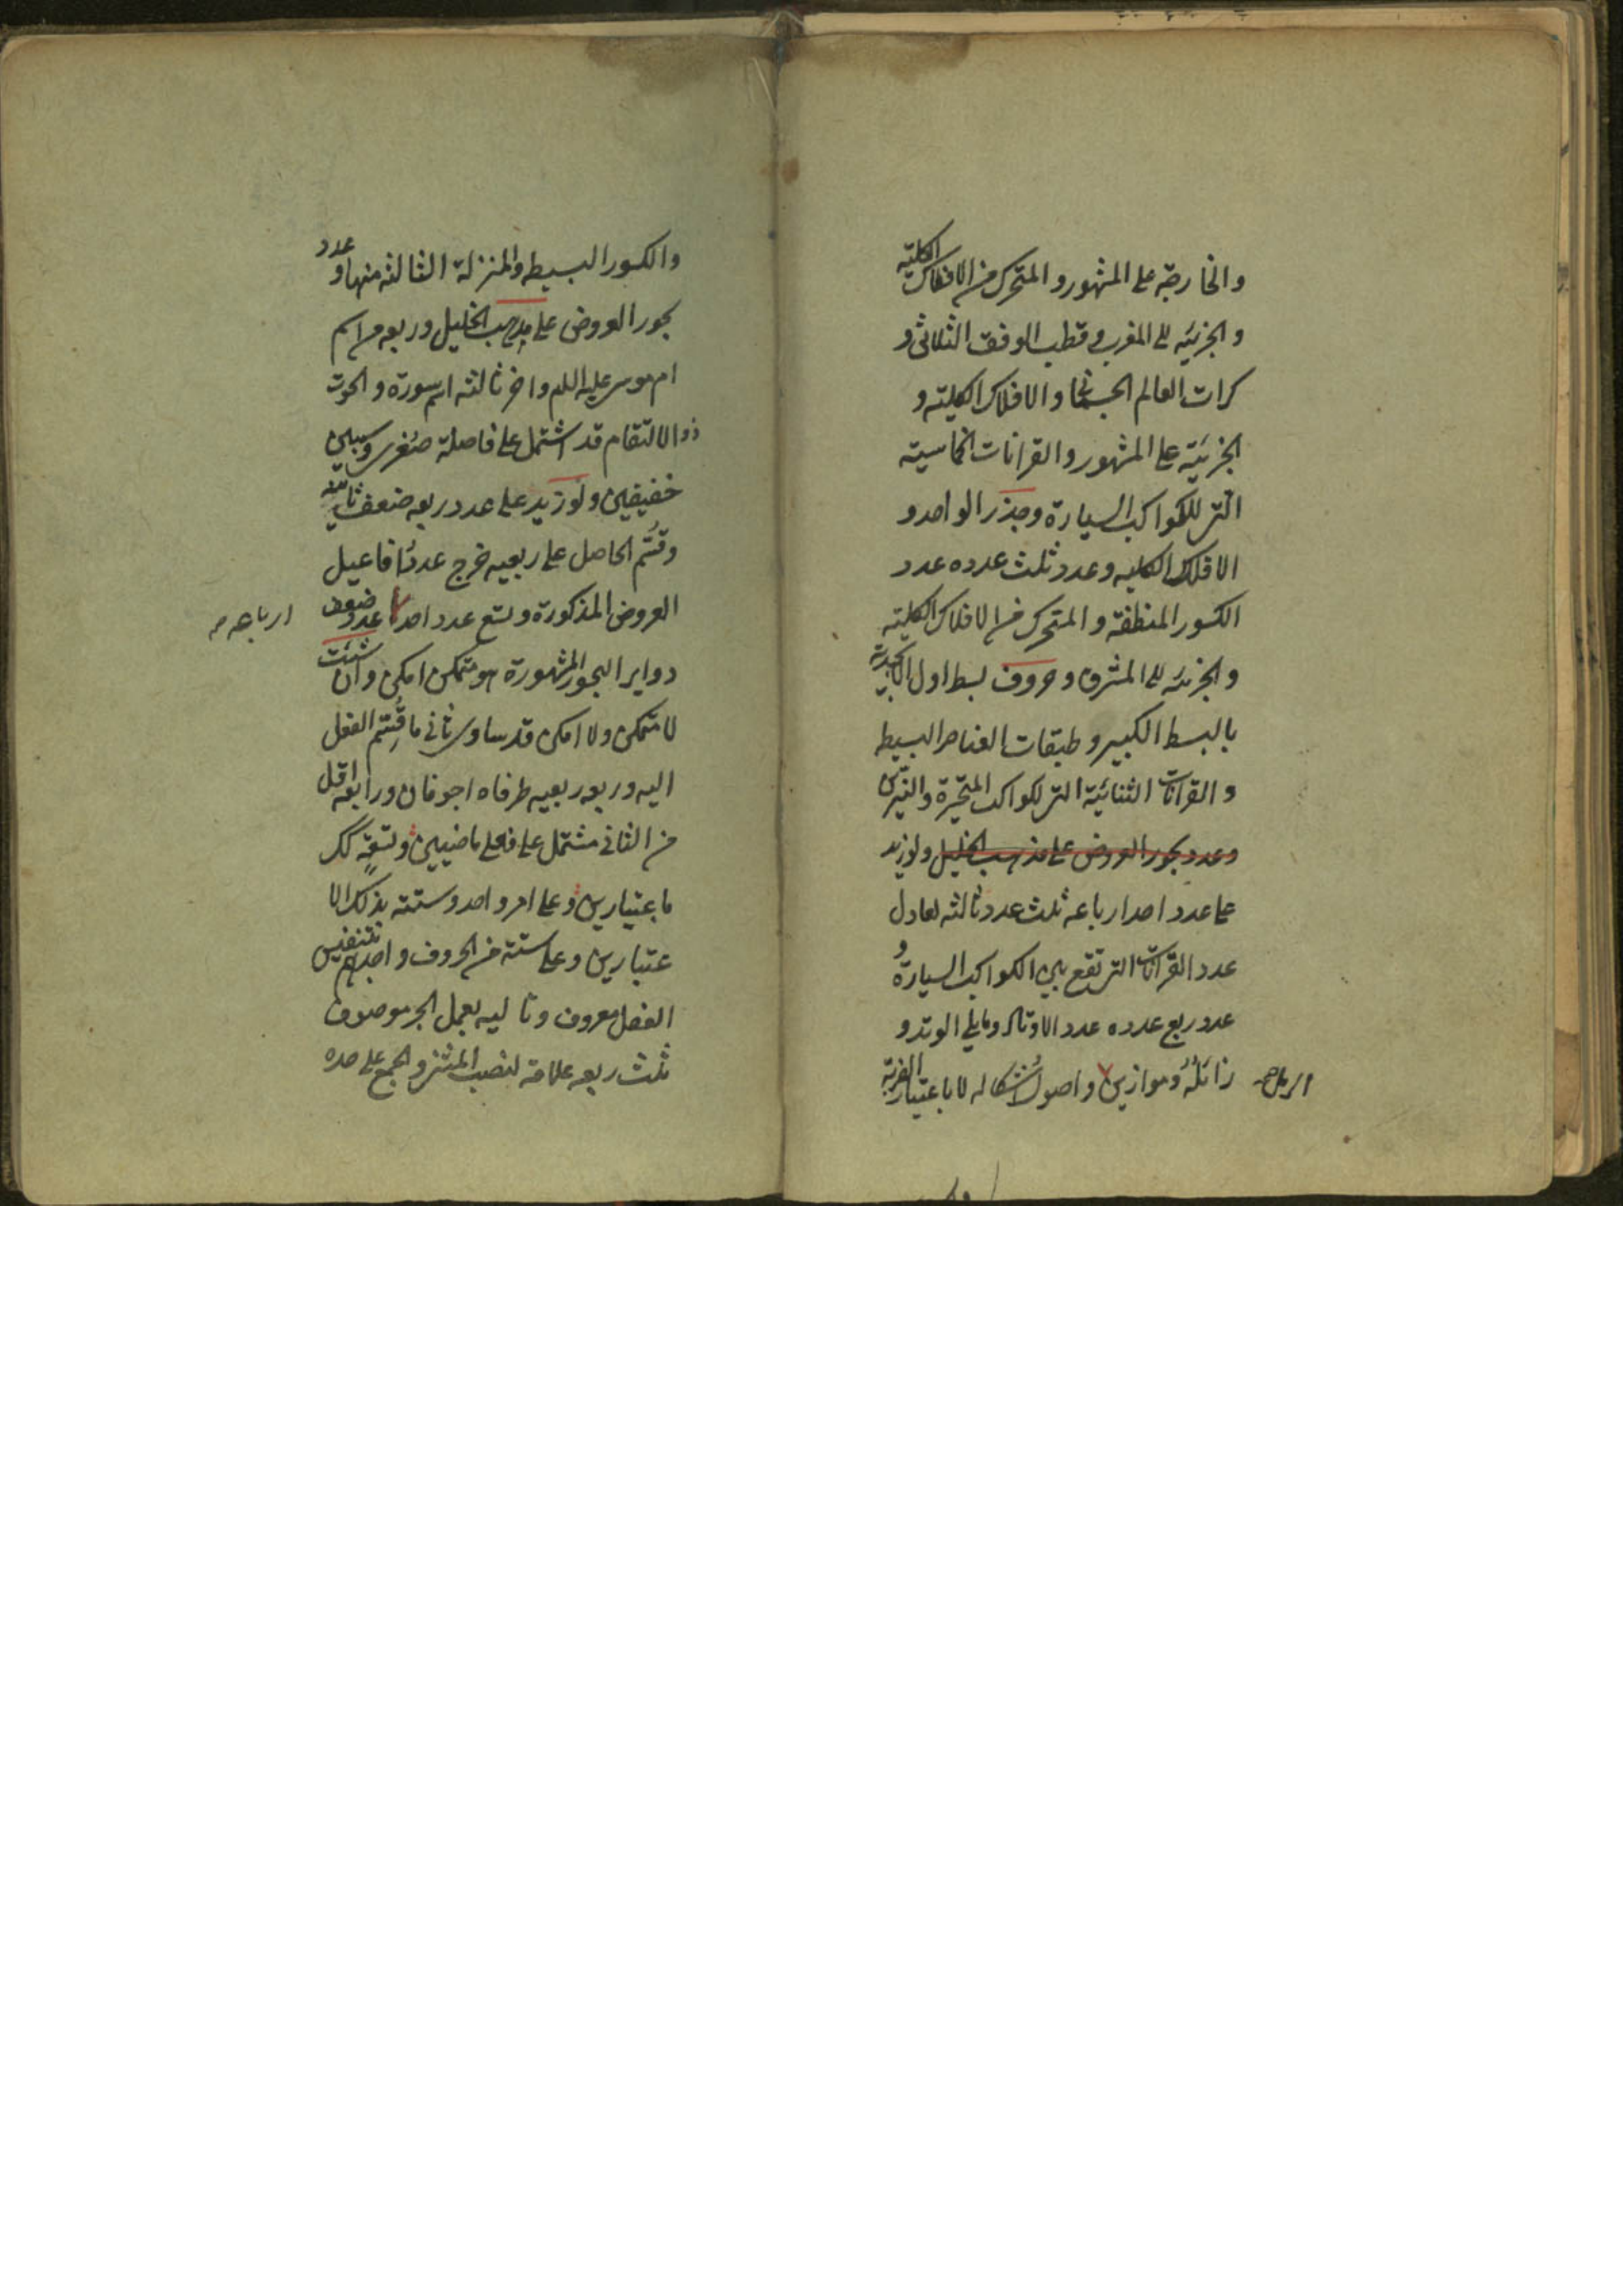 والخارجة على المشهور والمتحرك من الافلاك الكلية
والجزئية الى المغرب وقطب الوفق الثلاثى و
كرات العالم الجسمانى والافلاك الكلية و
الجزئية على المشهور والقرانات الخماسية
التى للكواكب السيارة وجذر الواحد و
الافلاك الكليه وعدد ثلث عدده عدد
الكسور المنطقة والمتحرك من الافلاك الكلية
والجزئية الى المشرق وحروف بسط اول الابجدية
بالبسط الكبير وطبقات العناصر البسيطه
والقرانات الثنائية التى لكواكب المتحيرة والنيرين
وعدد بحور العروض على مذهب الخليل ولو زيد
على عدد احد ارباعه ثلث عدد ثالثه لعادل
عدد القرانات التى تقع بين الكواكب السيارة و
عدد ربع عدده عدد الاوتاد وما يلى الوتد و
زائله وموازين واصول اشكاله لا باعتبار
الرمل صح
والكسور البسيطه والمنزلة الثالثه منها وعدد
بحور العروض على مذهب الخليل وربعه من اسم
ام موسى عليه اللم واخر ثالثه اسم سورة والحوت
ذو الالتقام قد اشتمل على فاصلة صغرى وسببين
خفيفين ولو زيد على عدد ربعه ضعف ثانيه
وقسم الحاصل على ربعيه خرج عدد افاعيل
العروض المذكورة وتسع عدد احد عدد ضعف
ارباعه صح
دواير البحور المشهورة هو متمكن امكن وان شئت
لا متمكن ولا امكن قد ساوى ثانى ما قسم الفعل
اليه وربعه ربعيه طرفاه اجوفان ورابعه اقل
من الثانى مشتمل على فعلى ماضيين وتسعة كك
باعتبارين وعلى امر واحد وستة بذلك الا
عتبارين وعلى ستة من الحروف واحدها بتنفيس
الفعل معروف وتاليه بعمل الجر موصوف
ثلث ربعه علامة لنصب المثنى والجمع على حده